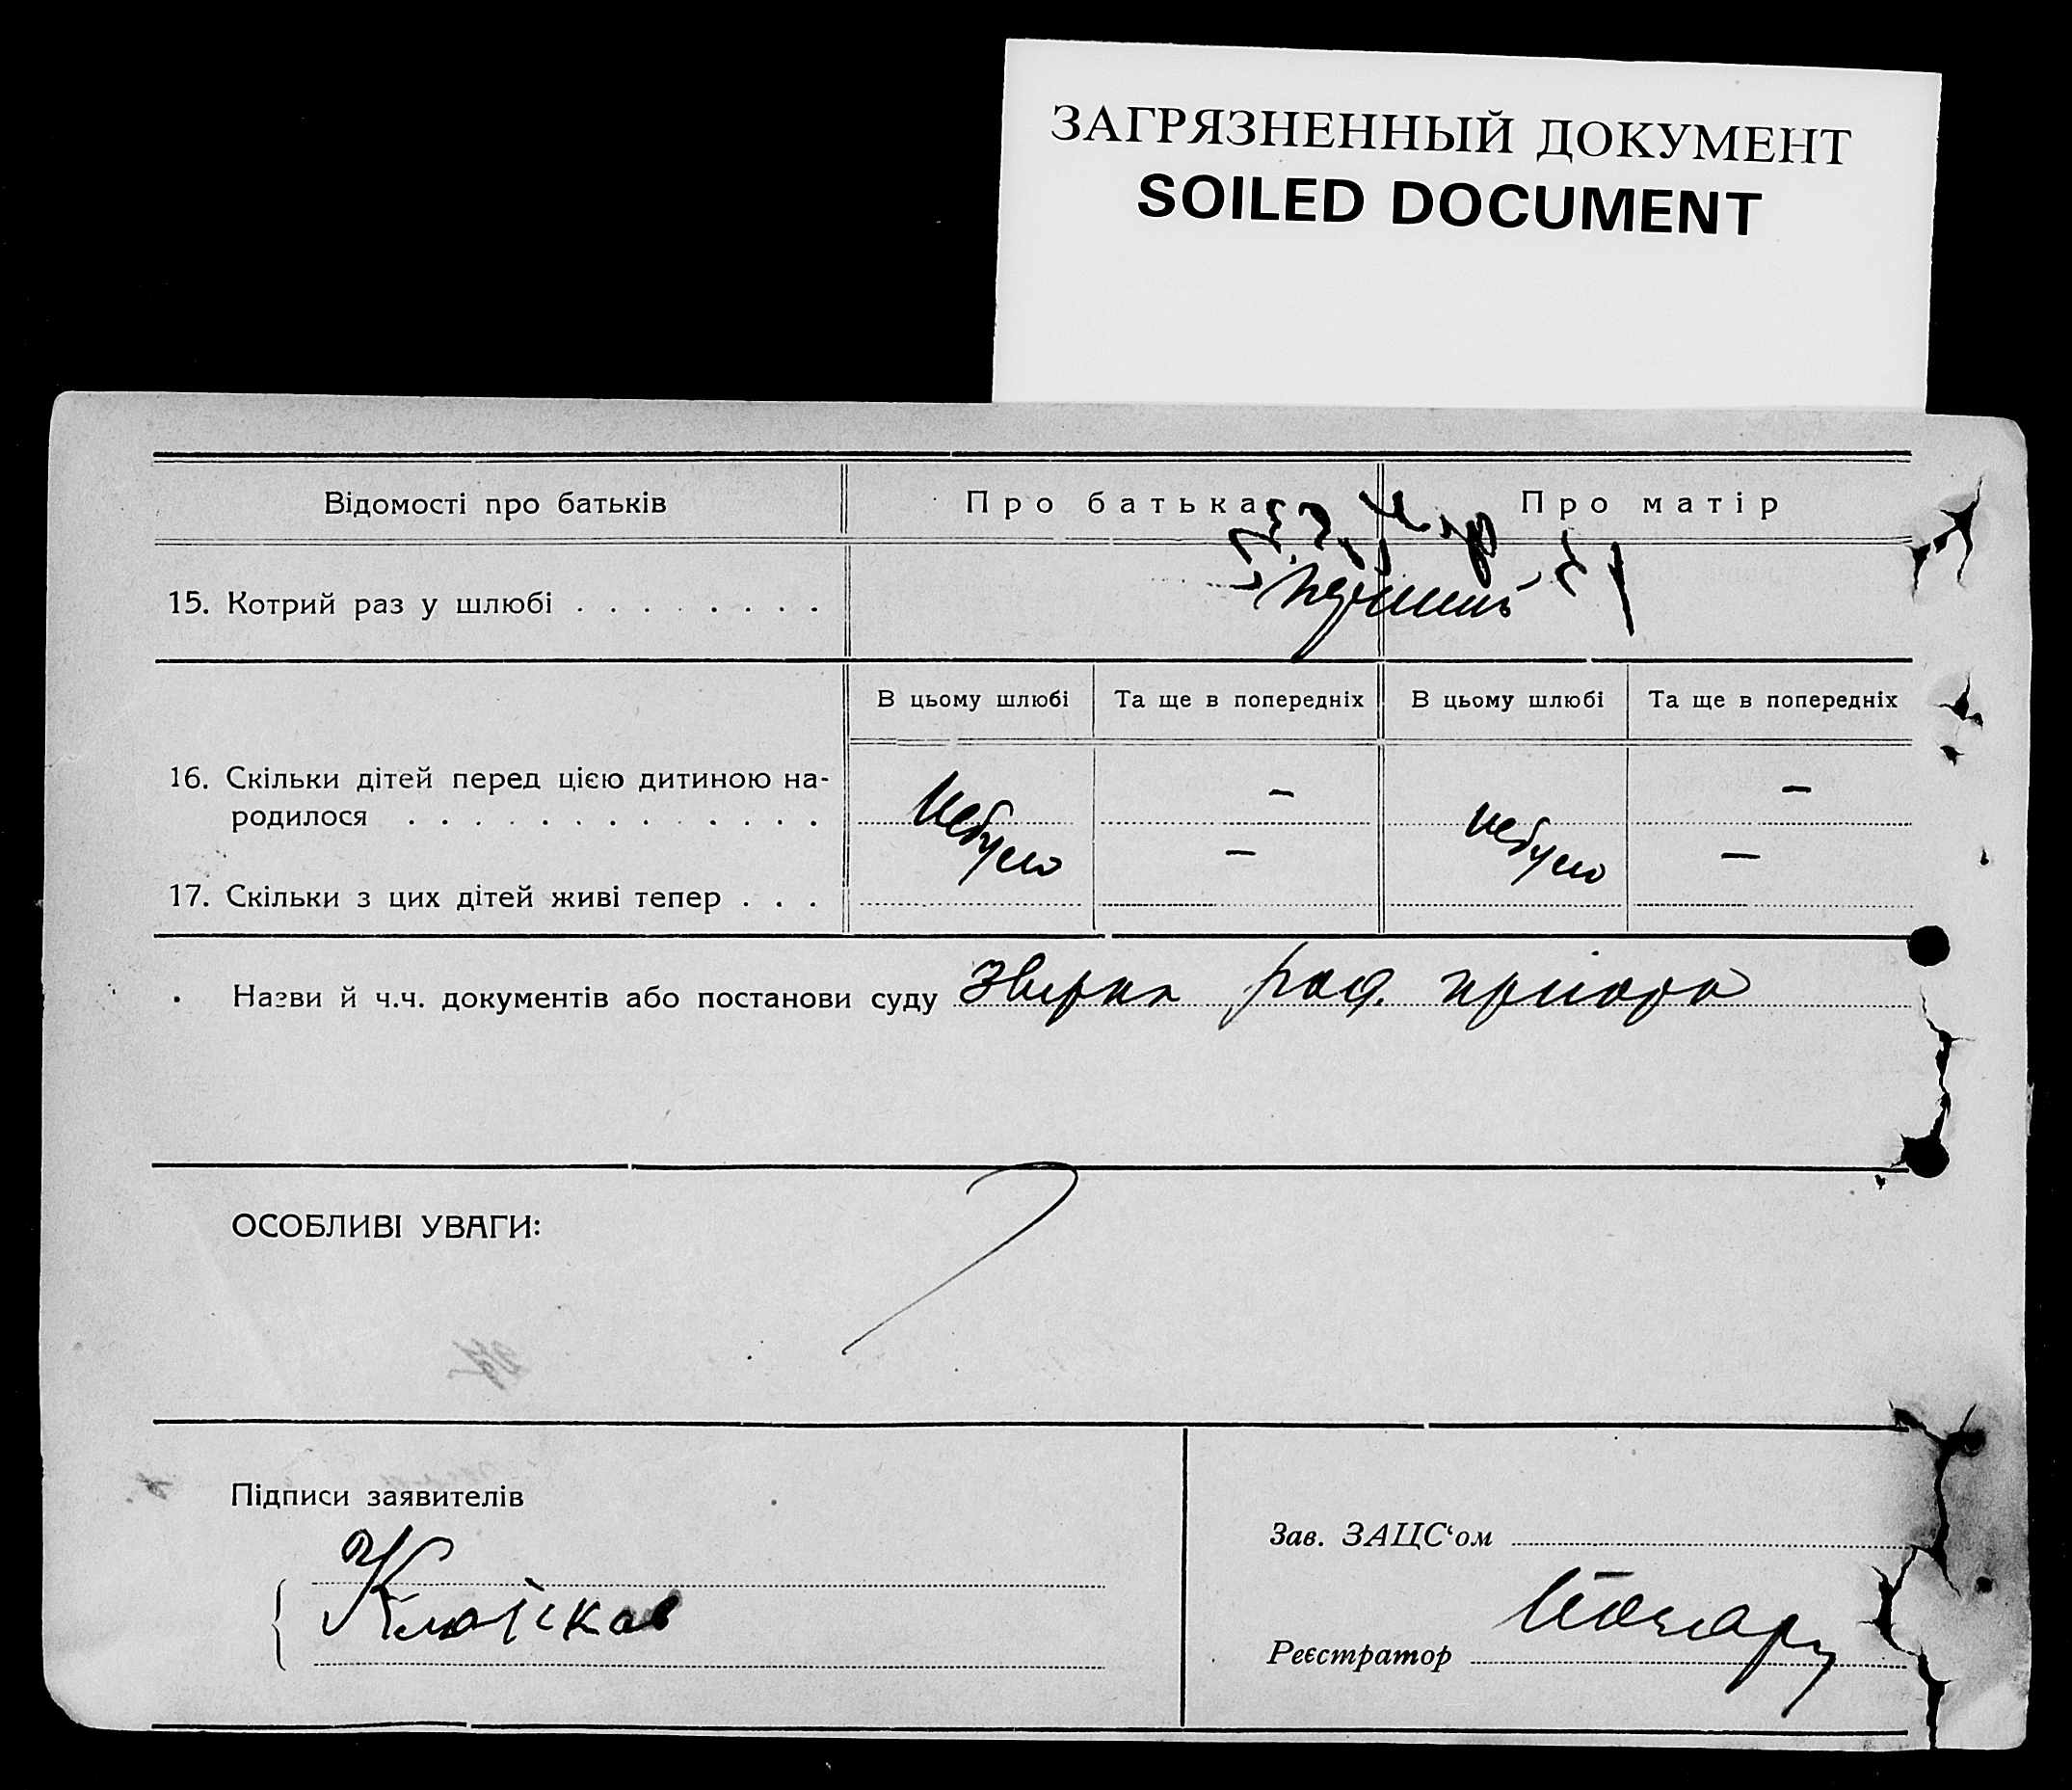 ЗАГРЯЗНЕННЫЙ ДОКУМЕНТ
SOILED DOCUMENT
Відомості про батьків
Про батька
Про матір
15. Котрий раз у шлюбі . . . . . . . .
В цьому шлюбі
Та ще в попередніх
В цьому шлюбі
Та ще в попередніх
16. Скільки дітей перед цією дитиною на-
родилося . . . . . . . . . . . . .
небуло
—
небуло
—
17. Скільки з цих дітей живі тепер . . .
—
—
Назви й ч.ч. документів або постанови суду
ОСОБЛИВІ УВАГИ:
Підписи заявителів
Зав. ЗАЦС‘ом
Реєстратор